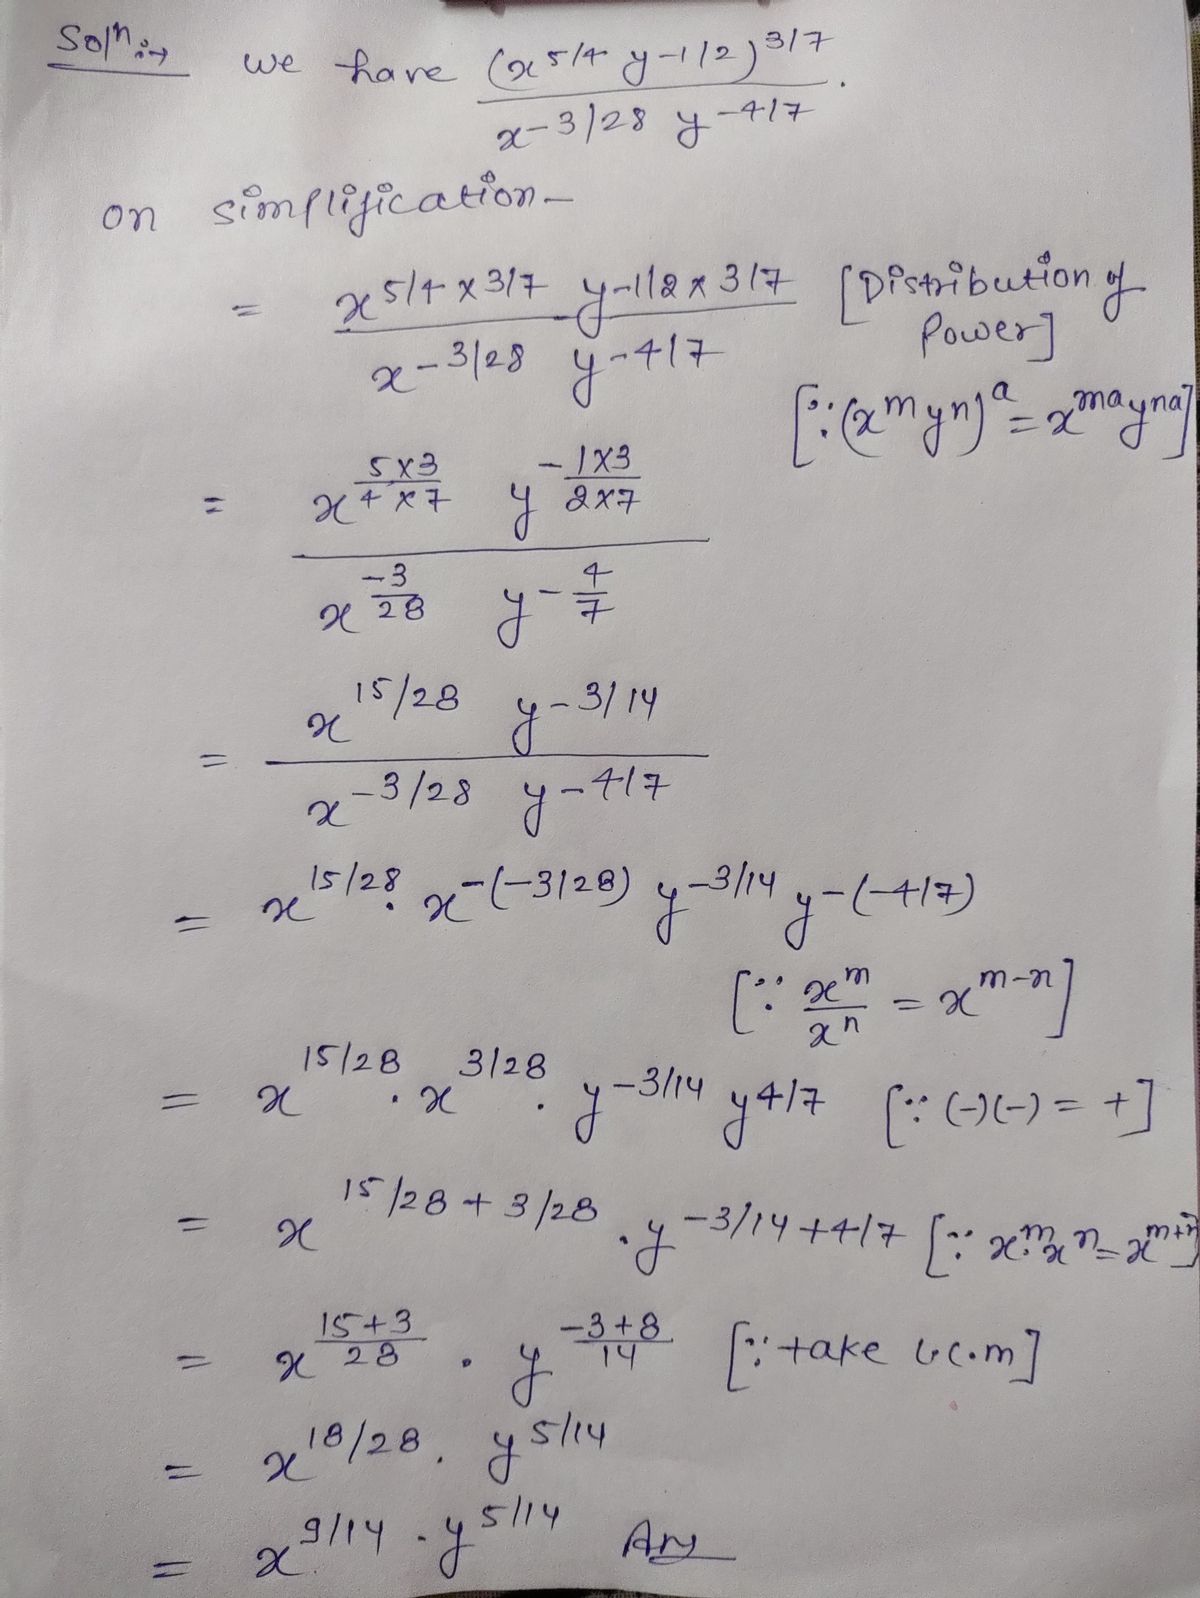 Solⁿ :→ we have (x^5/4 y^-1/2)^3/7 / x^-3/28 y^-4/7 .
on simplification -
= x^5/4 × 3/7 y^-1/2 × 3/7 / x^-3/28 y^-4/7 [Distribution of
Power]
[∵ (x^m y^n)^a = x^ma y^na]
= x^(5×3 / 4×7) y^(-1×3 / 2×7) / x^(-3/28) y^(-4/7)
= x^15/28 y^-3/14 / x^-3/28 y^-4/7
= x^15/28 . x^-(-3/28) y^-3/14 y^-(-4/7)
[∵ x^m / x^n = x^m-n]
= x^15/28 . x^3/28 . y^-3/14 y^4/7 [∵ (-)(-) = +]
= x^15/28 + 3/28 . y^-3/14 + 4/7 [∵ x^m . x^n = x^m+n]
= x^(15+3 / 28) . y^(-3+8 / 14) [∵ take L.C.m]
= x^18/28 . y^5/14
= x^9/14 . y^5/14 Ans